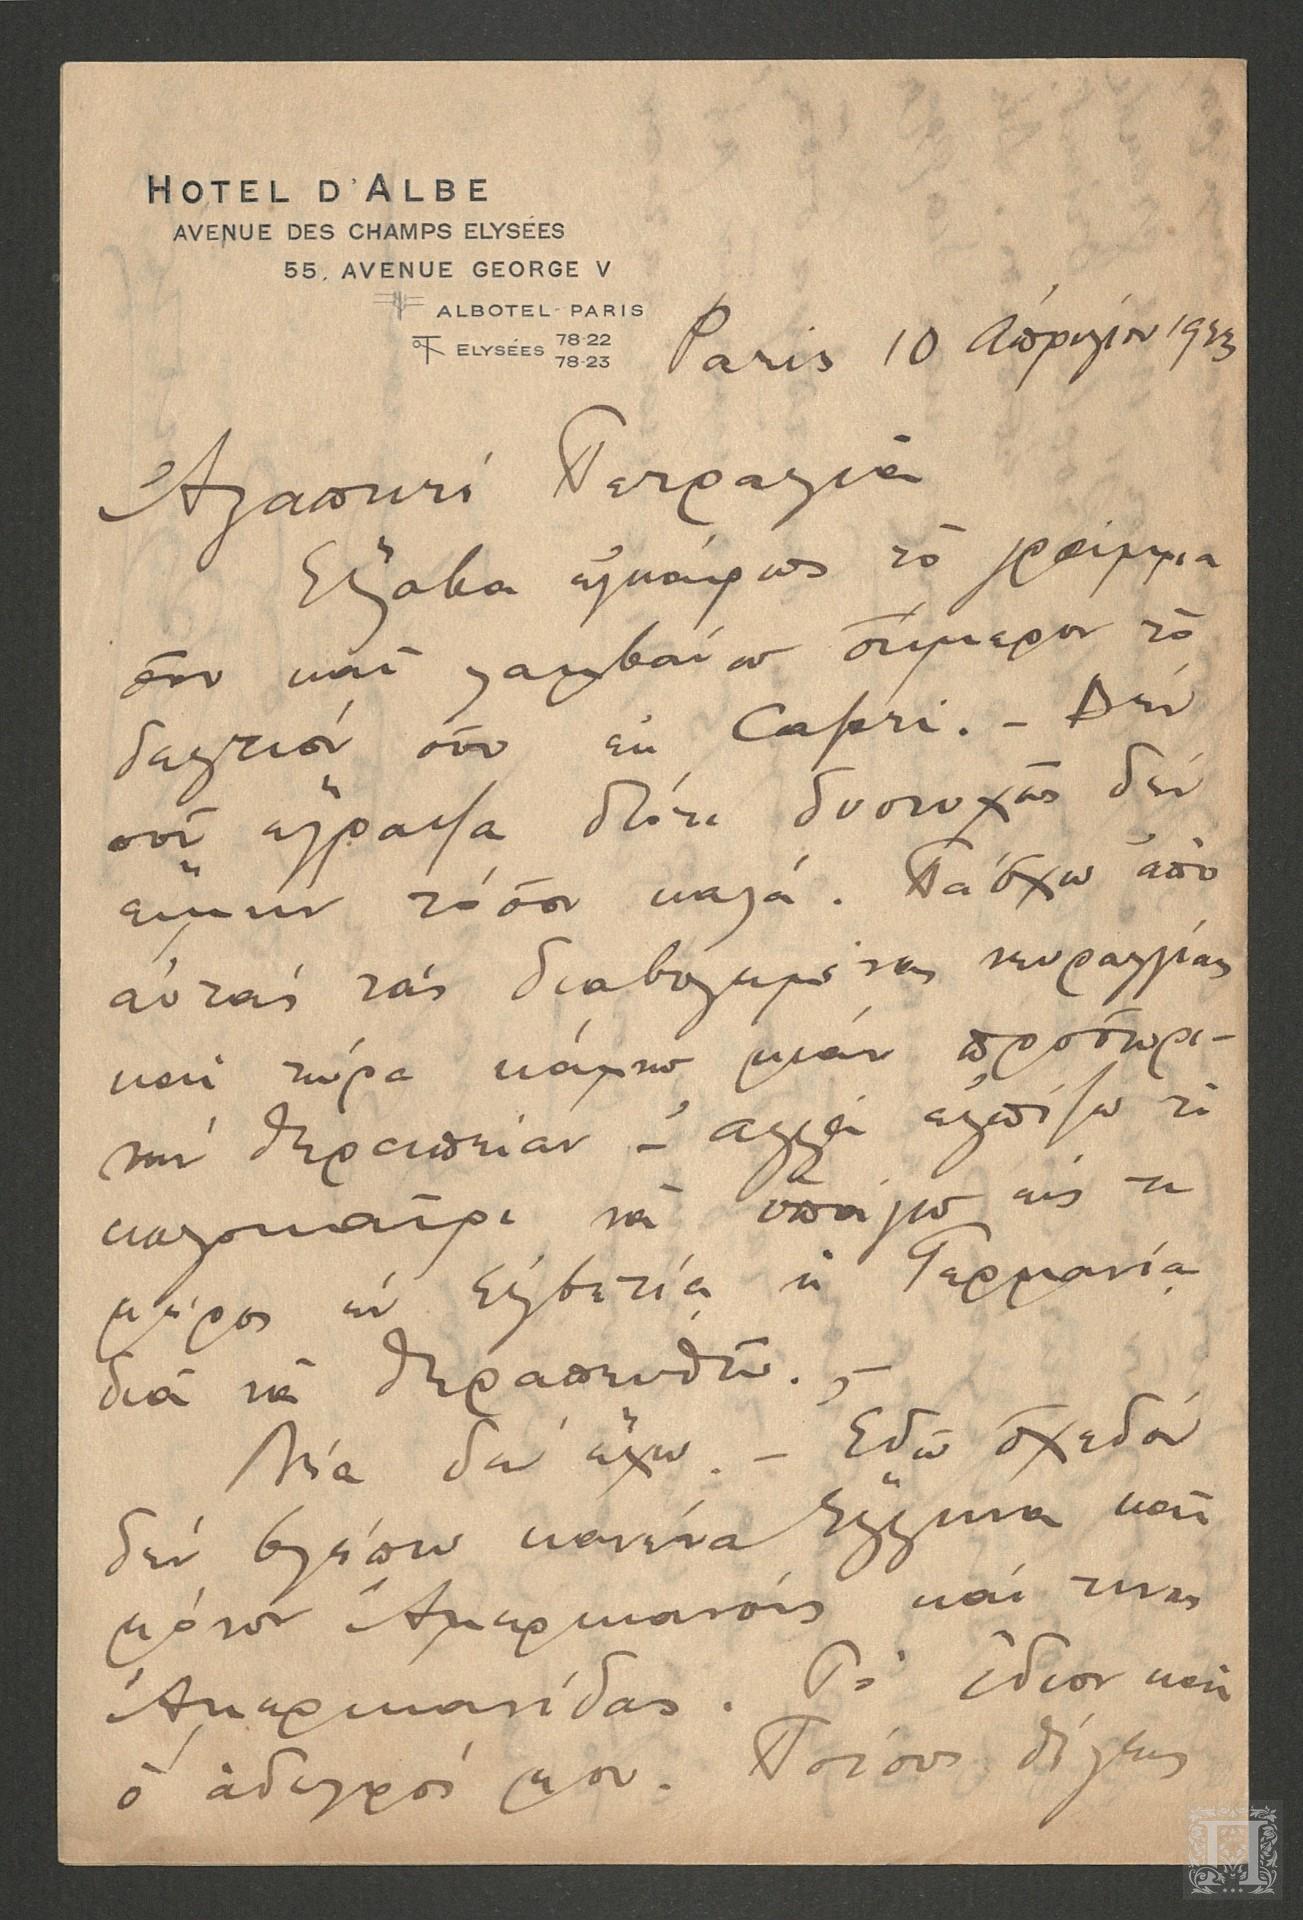 HOTEL D'ALBE
AVENUE DES CHAMPS ELYSÉES
55, AVENUE GEORGE V
ALBOTEL-PARIS
ELYSÉES 78-22
78-23
Paris 10 Ἀπριλίου 1923
Ἀγαπητέ Πετραλιᾶ
Ἔλαβα ἐγκαίρως τὸ γράμμα
σου καὶ λαμβάνω σήμερον τὸ
δελτιόν σου ἐκ Capri. – Δέν
σοῦ ἔγραψα διότι δυστυχῶς δέν
εἴμην τόσον καλά. Πάσχω ἀπὸ
αὐτάς τάς διαβολεμένας νευραλγίας
καὶ τώρα κάμνω μιάν προσωρι-
νήν θεραπείαν – ἀλλὰ ἐλπίζω τὸ
καλοκαῖρι νὰ ὑπάγω εἰς τι
μέρος ἐν Ἑλβετίᾳ ἢ Γερμανίᾳ
διὰ νὰ θεραπευθῶ. –
Νέα δέν ἔχω. – Ἐδῶ σχεδόν
δέν βλέπω κανένα Ἕλληνα καὶ
μόνον Ἀμερικανούς καί τινας
Ἀμερικανίδας. Τὸ ἴδιον καὶ
ὁ ἀδελφός μου. Ποίους θέλεις